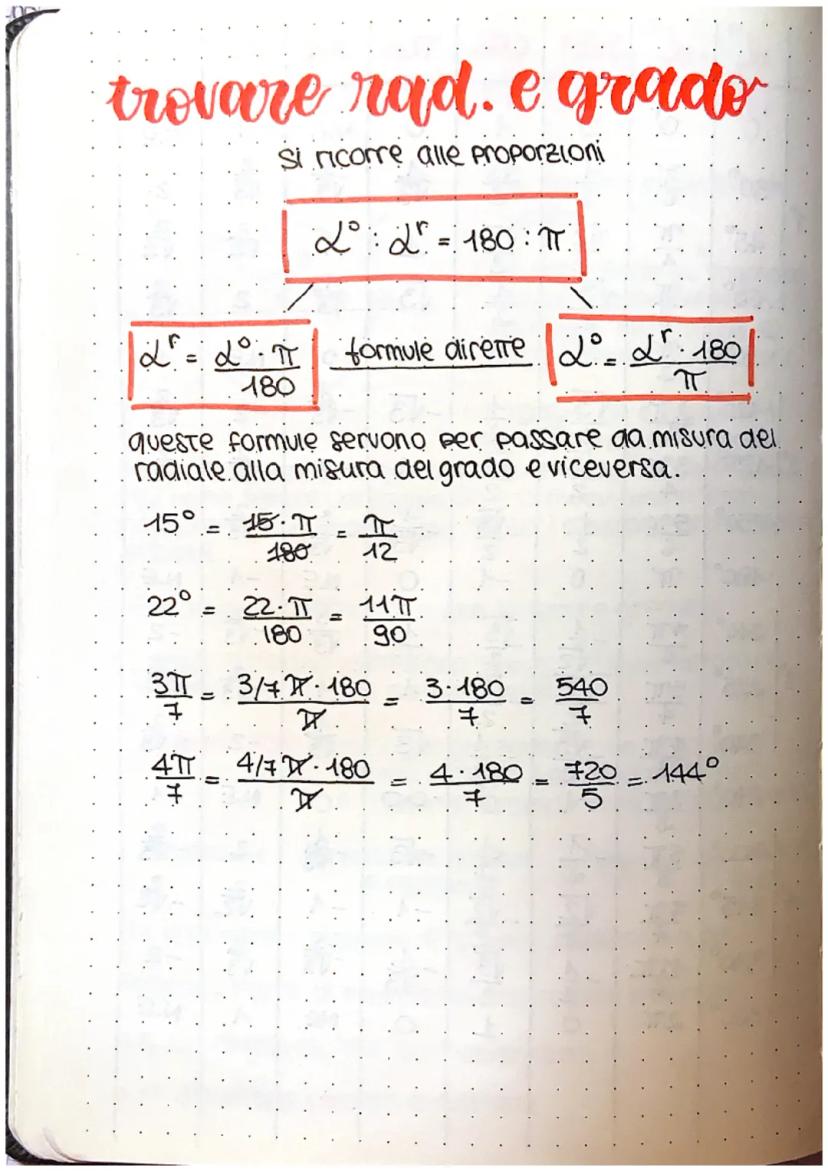 trovare rad. e grado
si ricorre alle proporzioni
α° : αʳ = 180 : π
αʳ = α° · π / 180
formule dirette
α° = αʳ · 180 / π
queste formule servono per passare da misura del
radiale alla misura del grado e viceversa.
15° = 15 · π / 180 = π / 12
22° = 22 · π / 180 = 11π / 90
3π / 7 = 3/7 π · 180 / π = 3 · 180 / 7 = 540 / 7
4π / 7 = 4/7 π · 180 / π = 4 · 180 / 7 = 720 / 5 = 144°